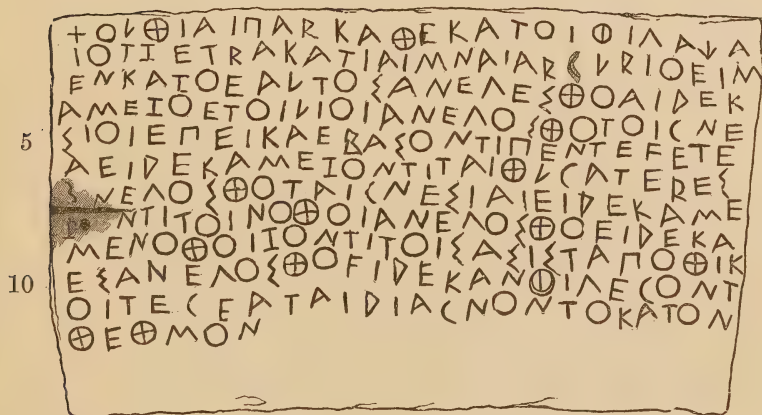 ΞΟΥΘΙΑΙΠΑΡΚΑΘΕΚΑΤΟΙΦΙΛΑΧΑ
ΙΟΤΙΕΤΡΑΚΑΤΙΑΙΜΝΑΙΑΡΓΥΡΙΟΕΙΜ
ΕΝΚΑΤΟΕΑΥΤΟΣΑΝΕΛΕΣΘΟΑΙΔΕΚ
ΑΜΕΙΟΕΤΟΙΥΙΟΙΑΝΕΛΟΣΘΟΤΟΙΓΝΕ
5 ΣΙΟΙΕΠΕΙΚΑΕΒΑΣΟΝΤΙΠΕΝΤΕϜΕΤΕ
ΑΕΙΔΕΚΑΜΕΙΟΝΤΙΤΑΙΘΥΓΑΤΕΡΕΣ
ΝΕΛΟΣΘΟΤΑΙΓΝΕΣΙΑΙΕΙΔΕΚΑΜΕ
ΝΤΙΤΟΙΝΟΘΟΙΑΝΕΛΟΣΘΟΕΙΔΕΚΑ
ΜΕΝΟΘΟΙΙΟΝΤΙΤΟΙΣΑΣΙΣΤΑΠΟΘΙΚ
10 ΕΣΑΝΕΛΟΣΘΟϜΙΔΕΚΑΝΦΙΛΕΓΟΝΤ
ΟΙΤΕΓΕΑΤΑΙΔΙΑΓΝΟΝΤΟΚΑΤΟΝ
ΘΕΘΜΟΝ